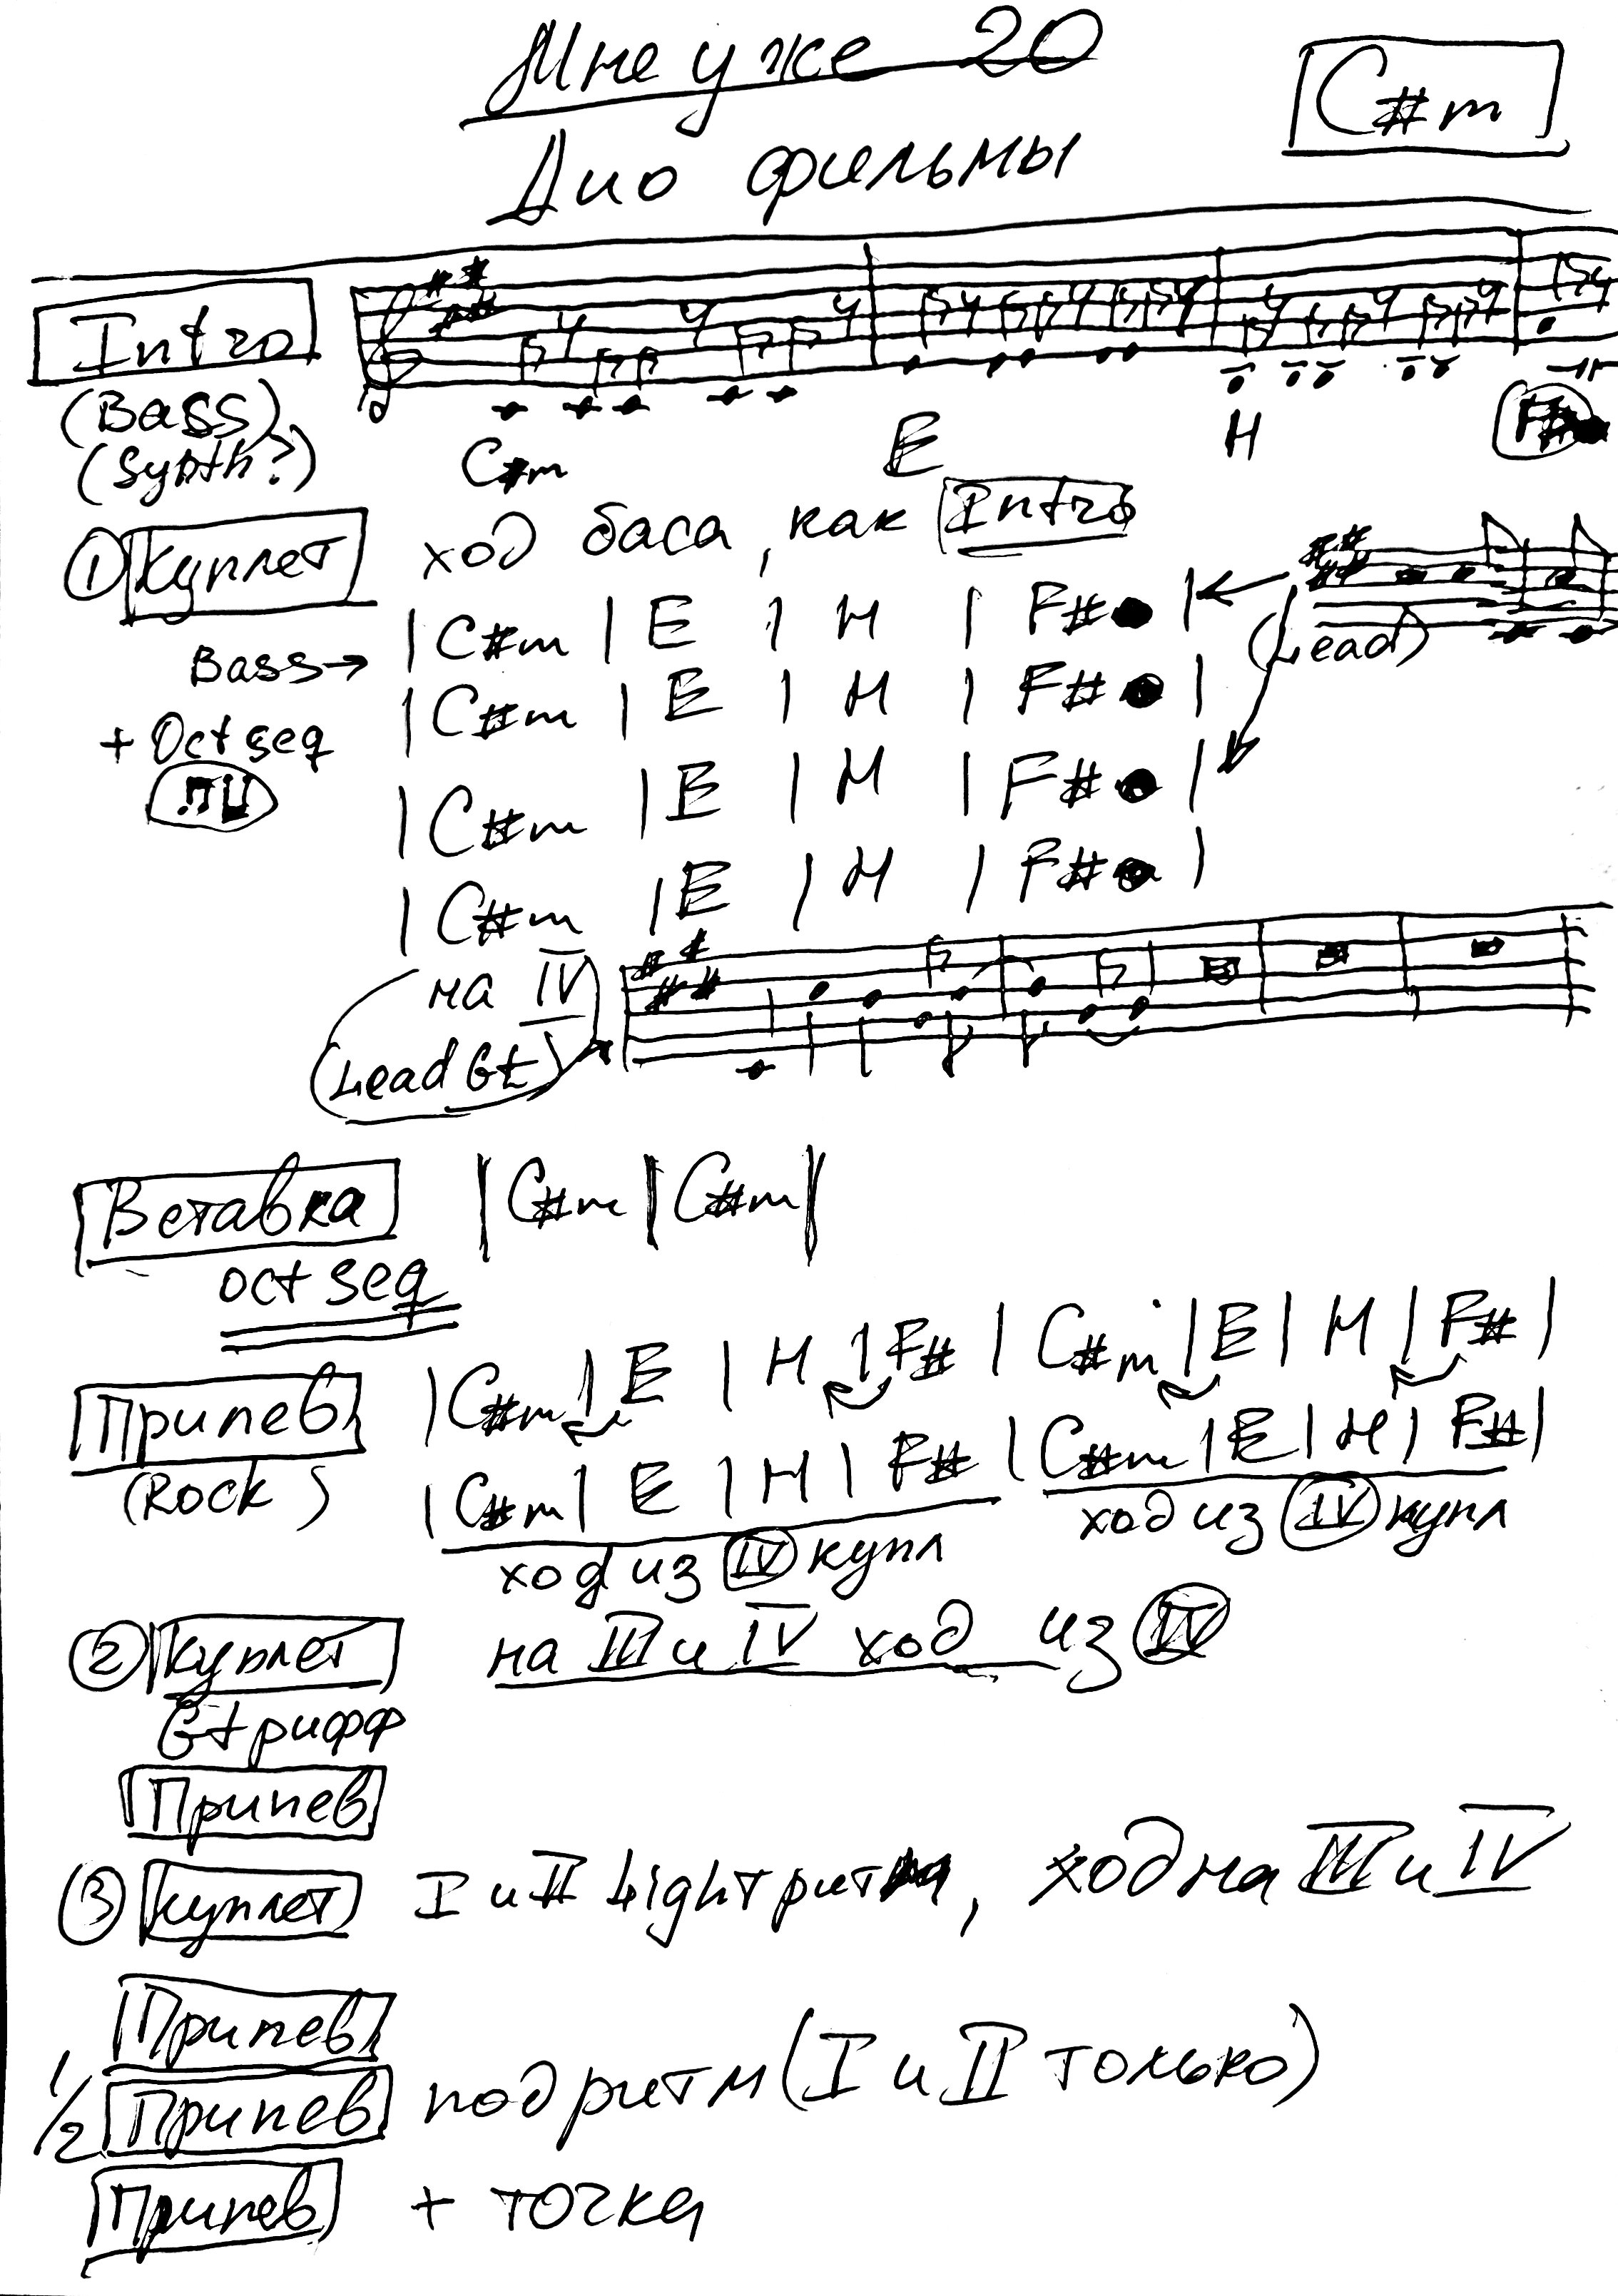 Мне уже 20
C#m
Дио фильмы
Intro
(Bass)
(Synth?)
C#m E H F#
① Куплет ход баса, как Intro
Bass→ | C#m | E | H | F# |
(Lead)
+ Oct seq | C#m | E | H | F# |
| C#m | E | H | F# |
| C#m | E | H | F# |
на IV
(Lead Gt)
Вставка | C#m | C#m |
oct seq
Припев | C#m | E | H | F# | C#m | E | H | F# |
(Rock) | C#m | E | H | F# | C#m | E | H | F# |
ход из IV купл ход из IV купл
② Куплет на III и IV ход из IV
Gt рифф
Припев
③ Куплет I и II Light ритм, ход на III и IV
Припев
1/2 Припев под ритм (I и II только)
Припев + точка